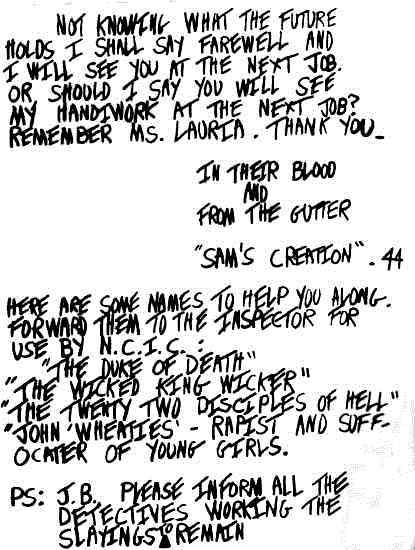 NOT KNOWING WHAT THE FUTURE
HOLDS I SHALL SAY FAREWELL AND
I WILL SEE YOU AT THE NEXT JOB.
OR SHOULD I SAY YOU WILL SEE
MY HANDIWORK AT THE NEXT JOB?
REMEMBER MS. LAURIA. THANK YOU_
IN THEIR BLOOD
AND
FROM THE GUTTER
"SAM'S CREATION". 44
HERE ARE SOME NAMES TO HELP YOU ALONG.
FORWARD THEM TO THE INSPECTOR FOR
USE BY N.C.I.C. :
"THE DUKE OF DEATH"
"THE WICKED KING WICKER"
"THE TWENTY TWO DISCIPLES OF HELL"
"JOHN 'WHEATIES' - RAPIST AND SUFF-
OCATER OF YOUNG GIRLS.
PS: J.B. PLEASE INFORM ALL THE
DETECTIVES WORKING THE
SLAYINGS TO REMAIN